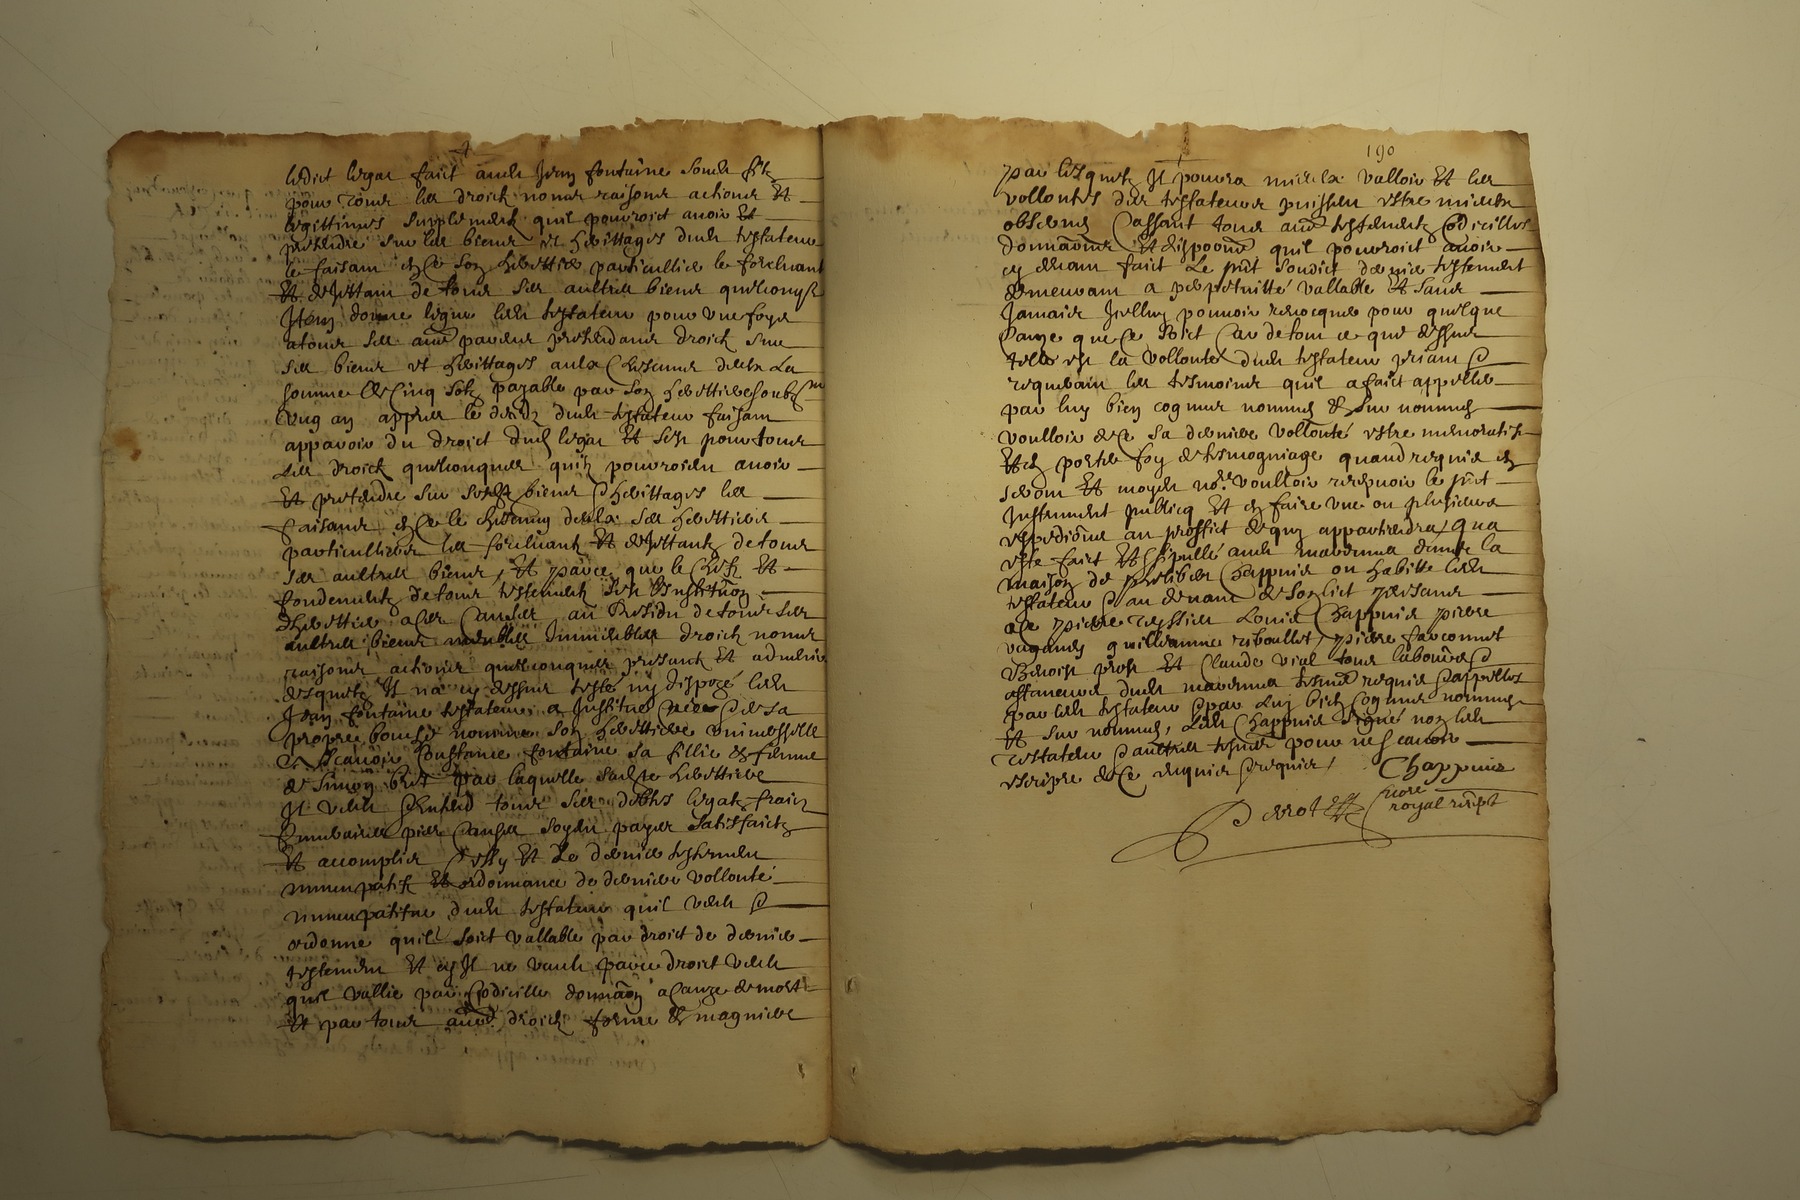 ledict legat faict audt Jean fontaine soudt filz
pour tous les droictz noms raisons actions Et
legittimes supplementz quil pourroit avoir Et
pretendre sur les biens et herittages dudt testateur
le faisant en ce son herittier particullier le forcluant
Et dejettant de tous ses aultres biens quelconques
Item donne legue ledt testateur pour une foys
a tous ses autres parens pretendans droict sur
ses biens et herittages aulx chescungs deulx La
somme de cinq solz payable par son herittiere soubz
ung an appres le decedz dudt testateur faisant
apparoir du droict dud legat Et ce pour tous
les droictz quelconques quilz pourroient avoir
Et pretendre sur sesdt biens & herittages les
faisant en ce le chescung deulx ses herittiers
particulliers les forcluant Et dejettantz de tous
ses aultres biens, Et parce que le chefz Et
fondementz de tous testementz est linstitution
dherittier a ces causes au Residu de tous ses
aultres biens meubles Immeubles droictz noms
raisons actions quelconques presentz Et advenir
desquelz Il na cy dessus testé ny disposé ledt
Jean fontaine testateur a Institué cree & de sa
propre bouche nomme son herittiere universselle
Ascavoir Constance fontaine sa fillie & femme
de Simon brit par laquelle sadte herittiere
Il veult & entend tous ses debtes legatz fraiz
funeraires pies causes soyent payes satisfaictz
Et accomplies Cest cy Et Le dernier testement
nuncupatif Et ordonnance de derniere vollonté
nuncupative dudt testateur quil veult &
ordonne quil soict vallable par droict de dernier
testement Et cy Il ne vault par ce droict veult
quil vallie par Codicille donnaon a cause de mort
Et par tous autres droictz forme & magniere
190
par lesquelz Il pourra mieulx valloir Et les
vollontes des testateurs puissent estre mieulx
observes Cassant tous autres testementz Codicilles
donnaons Et disppoons quil pourroict avoir
cy devant faict Le pnt soudict dernier testement
demeurant a perpetuitté vallable Et sans
Jamais Icelluy pouvoir revocquer pour quelque
cause que ce soict Car de tout ce que dessus
telle est la vollonté dudt testateur priant &
requerant les tesmoings quil a faict appeller
par luy bien cognus nommes & sur nommes
voulloir de ce sa derniere vollonté estre memoratifz
Et en porter foy & tesmogniage quand requis en
seront Et moyen nore voulloir recepvoir le pnt
Instrument publicq Et en faire une ou plusieurs
expedions au proffict de quy appartiendra, qua
este faict Et stipullé audt marennes dans la
maison de phelibert Chappuis ou habitte ledt
testateur & au devant de son lict presans
a ce pierre tessier Louis Chappuis pierre
guillaume riboullet, pierre farconnet
Benoist pros Et Claude vial tous laboureurs &
affaneurs dudt marennes tesmoings requis & appelles
par ledt testateur & par luy bien cognus nommes
Et sur nommes, Ledt Chappuis Signé non ledt
testateur & aultres tesmoings pour ne scavoir
escripre de ce enquis & requis, Chappuis
Perrot nore
royal recept